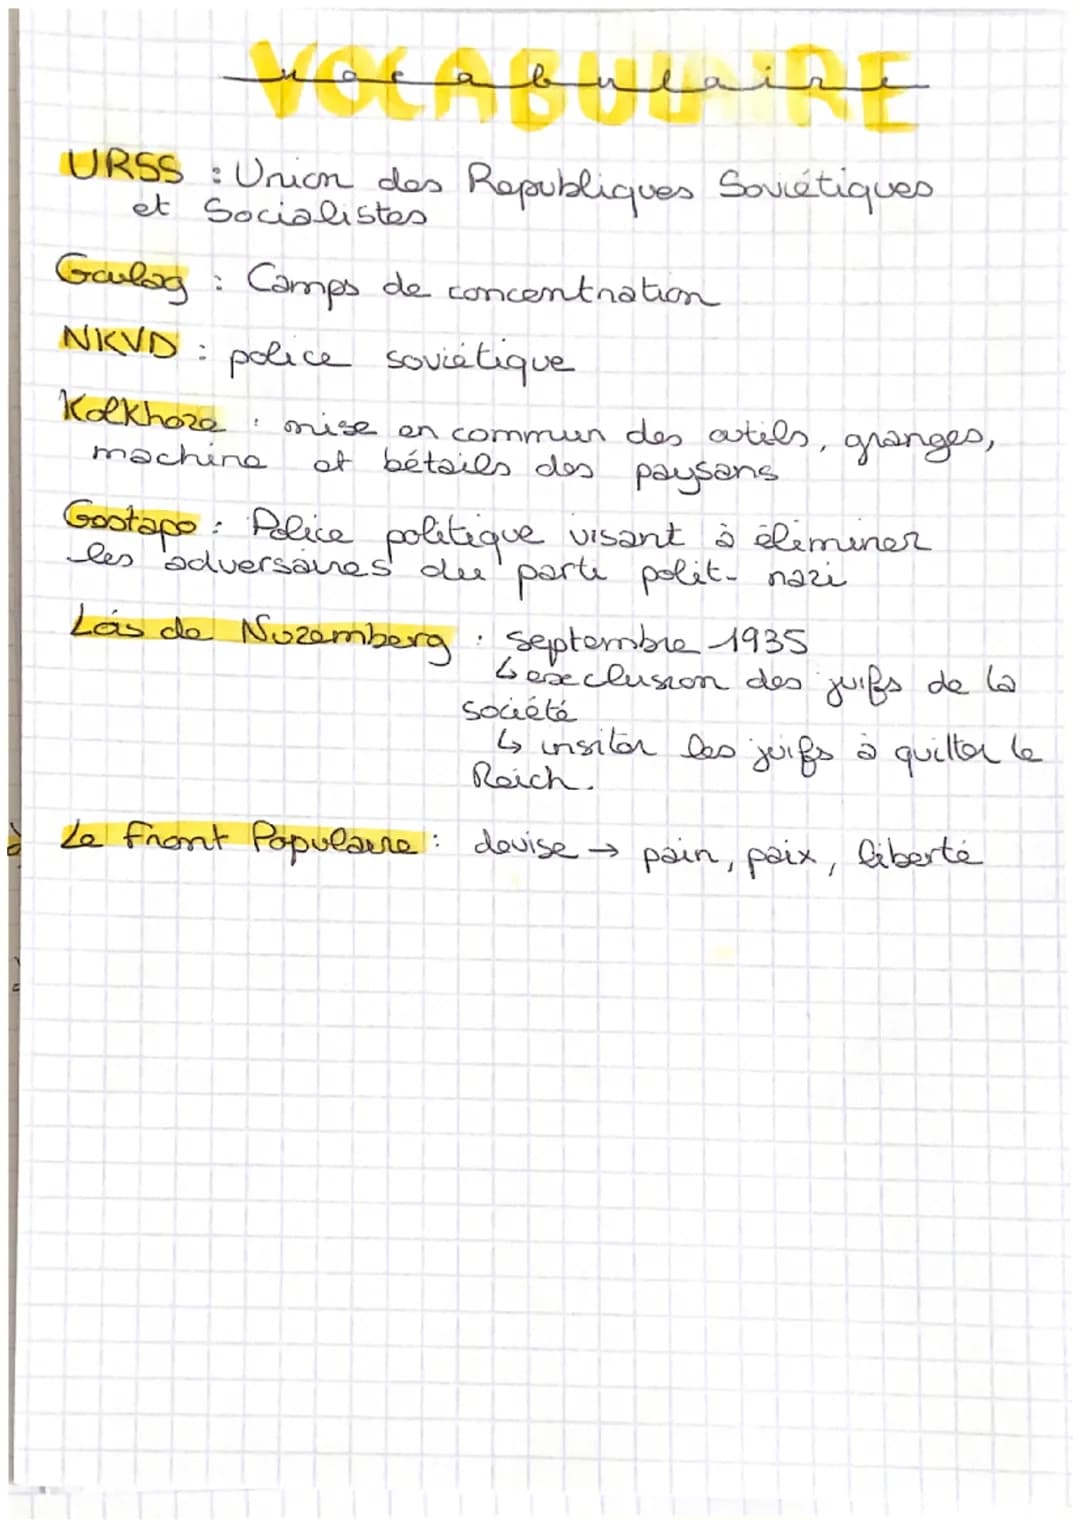 VOCABULAIRE
vocabulaire
URSS : Union des Republiques Soviétiques
et Socialistes
Goulag : Camps de concentration
NKVD : police soviétique
Kolkhoze : mise en commun des outils, granges,
machine et bétails des paysans
Gestapo : Police politique visant à éliminer
les adversaires du parti polit. nazi
Lois de Nuremberg : septembre 1935
↳ exclusion des juifs de la
société
↳ insiter les juifs à quitter le
Reich.
Le Front Populaire : devise → pain, paix, liberté